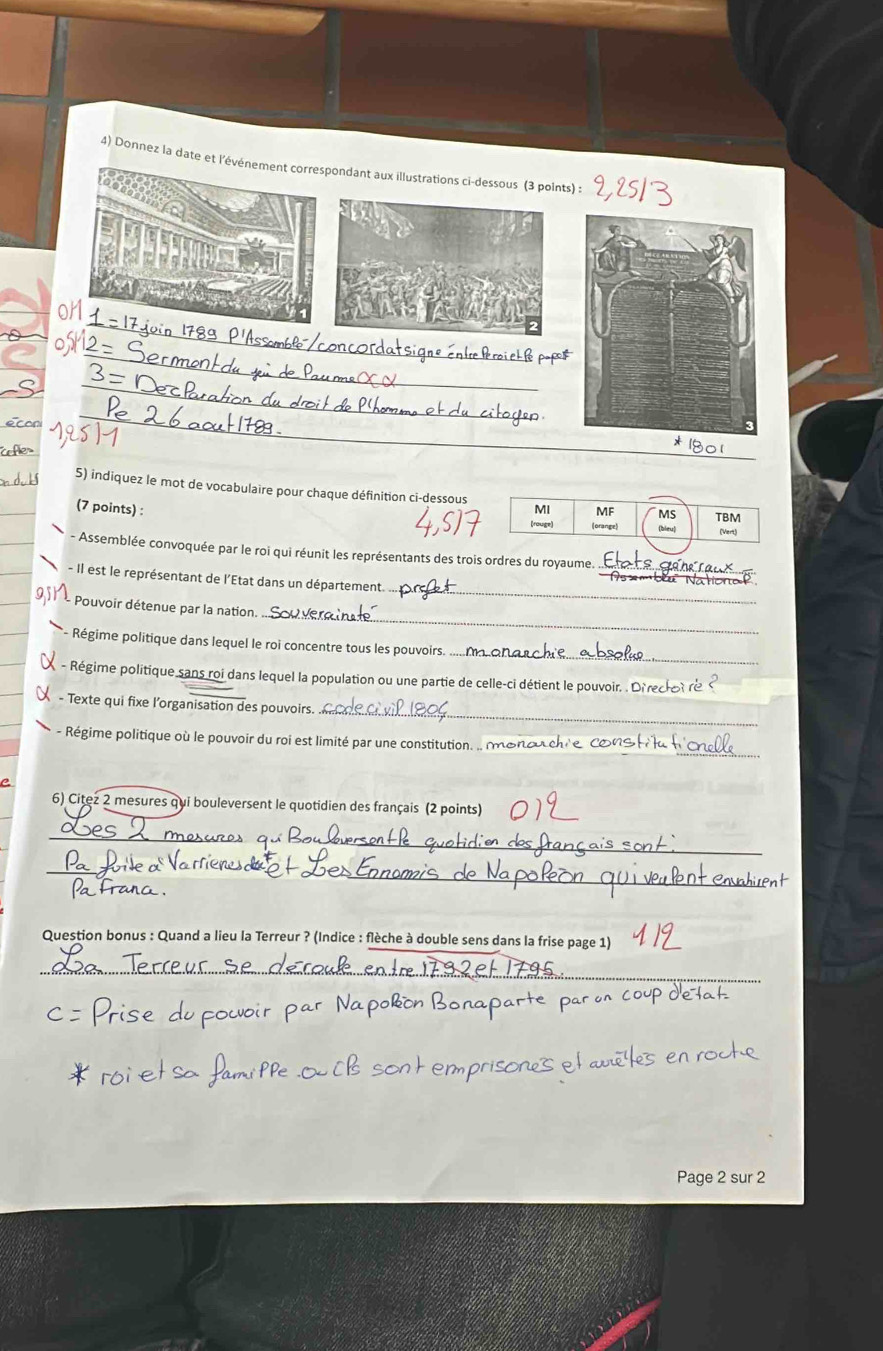 4) Donnez la date et l'événement correspondant aux illustrations ci-dessous (3 points) : 2,25/3
DECLARATION
1
2
3
0/1 1 = 17 join 1789 l'Assemblé / concordat signe entre le roi et le papet
0,5/1 2 = Sermont du jeu de Paume
3 = Declaration du droit de l'homme et du citogen.
le 26 aout 1789.
1,25/1
* 1801
5) indiquez le mot de vocabulaire pour chaque définition ci-dessous
(7 points) : 4,5/7
MI (rouge) MF (orange) MS (bleu) TBM (Vert)
- Assemblée convoquée par le roi qui réunit les représentants des trois ordres du royaume. Etats généraux
Assemblée National.
- Il est le représentant de l'Etat dans un département. prefet
0,5/1 - Pouvoir détenue par la nation. Souveraineté
- Régime politique dans lequel le roi concentre tous les pouvoirs. monarchie absolue
- Régime politique sans roi dans lequel la population ou une partie de celle-ci détient le pouvoir. Directoire ?
- Texte qui fixe l'organisation des pouvoirs. code civil 1804
- Régime politique où le pouvoir du roi est limité par une constitution. monarchie constitutionelle
6) Citez 2 mesures qui bouleversent le quotidien des français (2 points) 0/2
Les 2 mesures qui Bouleversent le quotidien des français sont :
la fuite a Varrienes et Les Ennemis de Napoléon qui veulent envahirent
la frana.
Question bonus : Quand a lieu la Terreur ? (Indice : flèche à double sens dans la frise page 1) 1/2
La Terreur se déroule entre 1792 et 1795.
C = Prise du pouvoir par Napoléon Bonaparte par un coup d'etat
* roi et sa famille ou ils sont emprisonés et arrêtés en route
Page 2 sur 2